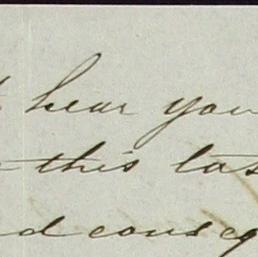 hear you
this las
d conseq